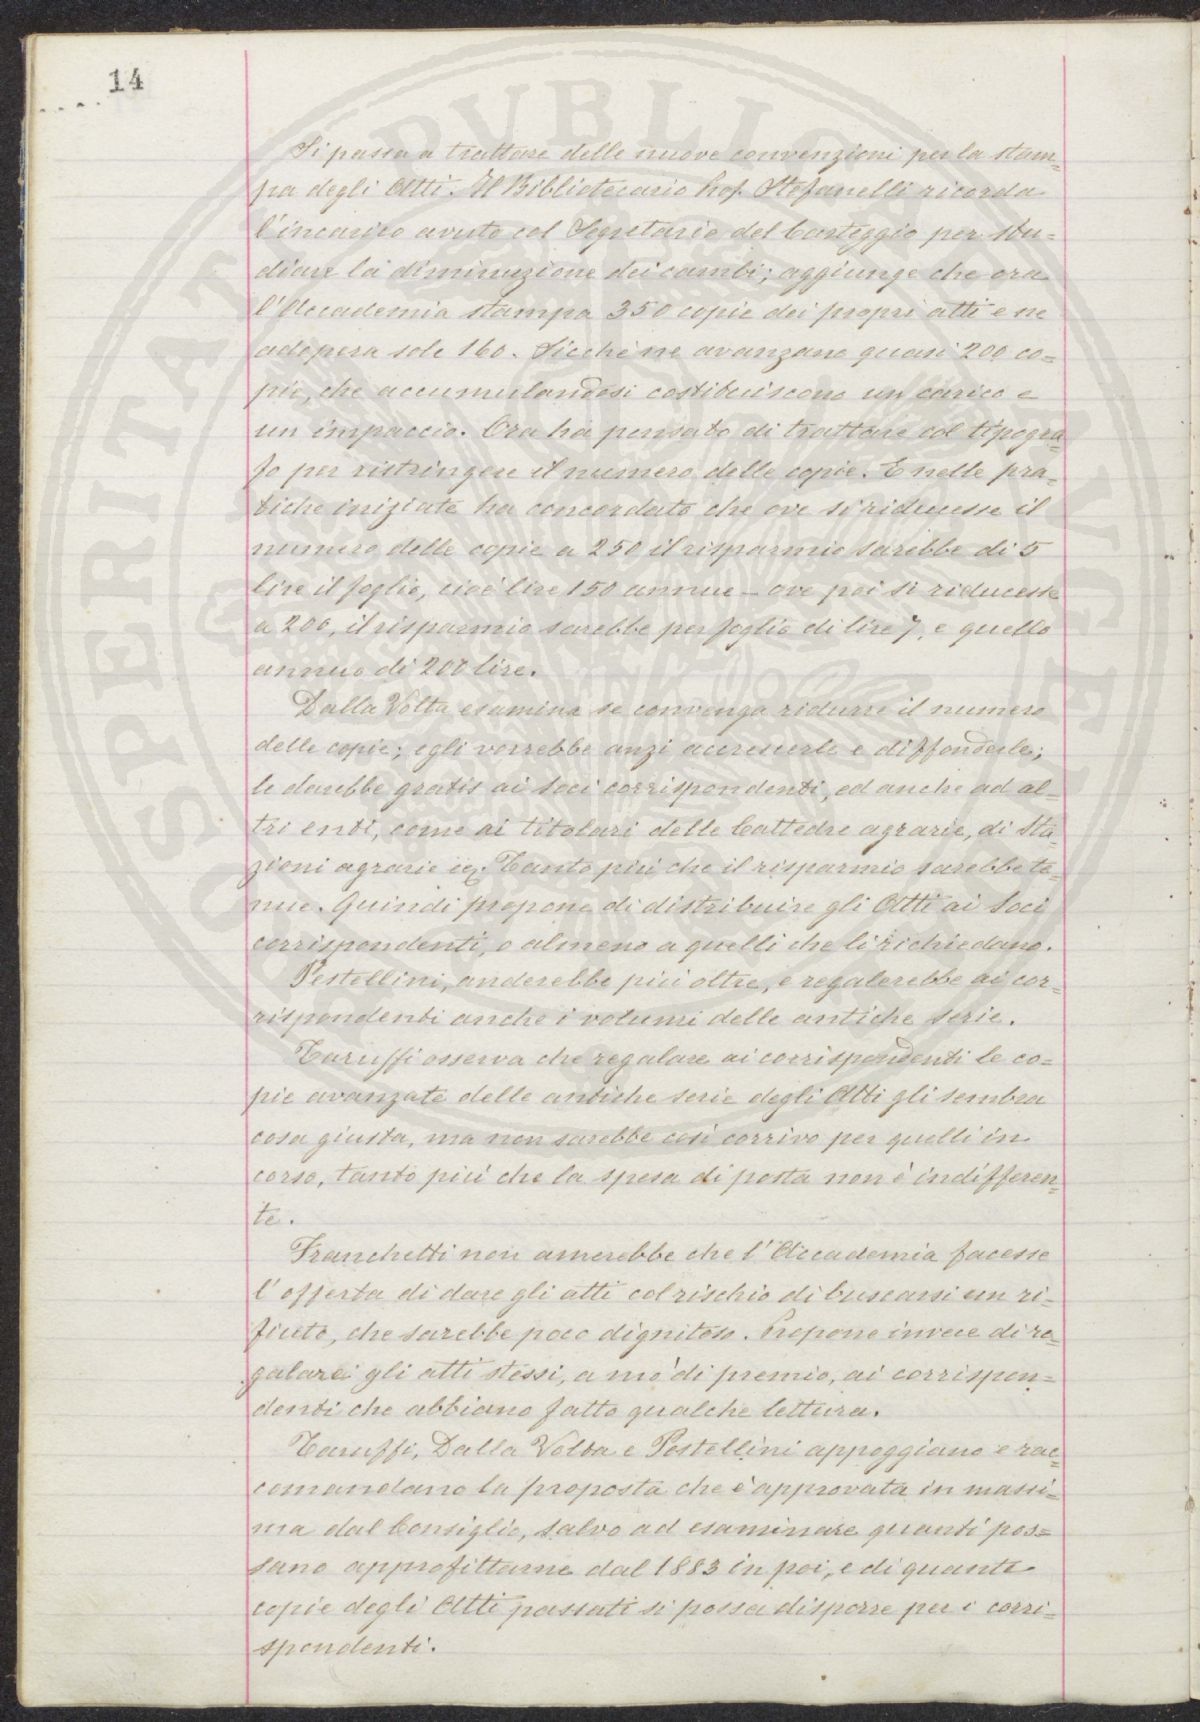 14
Si passa a trattare delle nuove convenzioni per la stam=
pa degli Atti. Il Bibliotecario Prof. Stefanelli ricorda
l'incarico avuto col Segretario del Carteggio per stu=
diare la diminuzione dei cambi; aggiunge che ora
l'Accademia stampa 350 copie dei propri atti e ne
adopera sole 160. Sicchè ne avanzano quasi 200 co=
pie, che accumulandosi costituiscono un carico e
un impaccio. Ora ha pensato di trattare col tipogra=
fo per ristringere il numero delle copie. E nelle pra=
tiche iniziate ha concordato che ove si riducesse il
numero delle copie a 250 il risparmio sarebbe di 5
lire il foglio, cioè lire 150 annue – ove poi si riducesse
a 200, il risparmio sarebbe per foglio di lire 7, e quello
annuo di 200 lire.
Dalla Volta esamina se convenga ridurre il numero
delle copie; egli vorrebbe anzi accrescerle e diffonderle;
le darebbe gratis ai Soci corrispondenti, ed anche ad al=
tri enti, come ai titolari delle Cattedre agrarie, di Sta=
zioni agrarie Tanto più che il risparmio sarebbe te=
nue. Quindi propone di distribuire gli Atti ai Soci
corrispondenti, o almeno a quelli che li richiedano.
Pestellini, anderebbe più oltre, e regalerebbe ai cor=
rispondenti anche i volumi delle antiche serie.
Taruffi osserva che regalare ai corrispondenti le co=
pie avanzate delle antiche serie degli Atti gli sembra
cosa giusta, ma non sarebbe così corrivo per quelli in
corso, tanto più che la spesa di posta non è indifferen=
te.
Franchetti non amerebbe che l'Accademia facesse
l'offerta di dare gli atti col rischio di buscarsi un ri=
fiuto, che sarebbe poco dignitoso. Propone invece di re=
galare gli atti stessi, a mo' di premio, ai corrispon=
denti che abbiano fatto qualche lettura.
Taruffi, Dalla Volta e Pestellini appoggiano e rac=
comandano la proposta che è approvata in massi=
ma dal Consiglio, salvo ad esaminare quanti pos=
sano approfittarne dal 1883 in poi, e di quante
copie degli Atti passati si possa disporre per i corri=
spondenti.